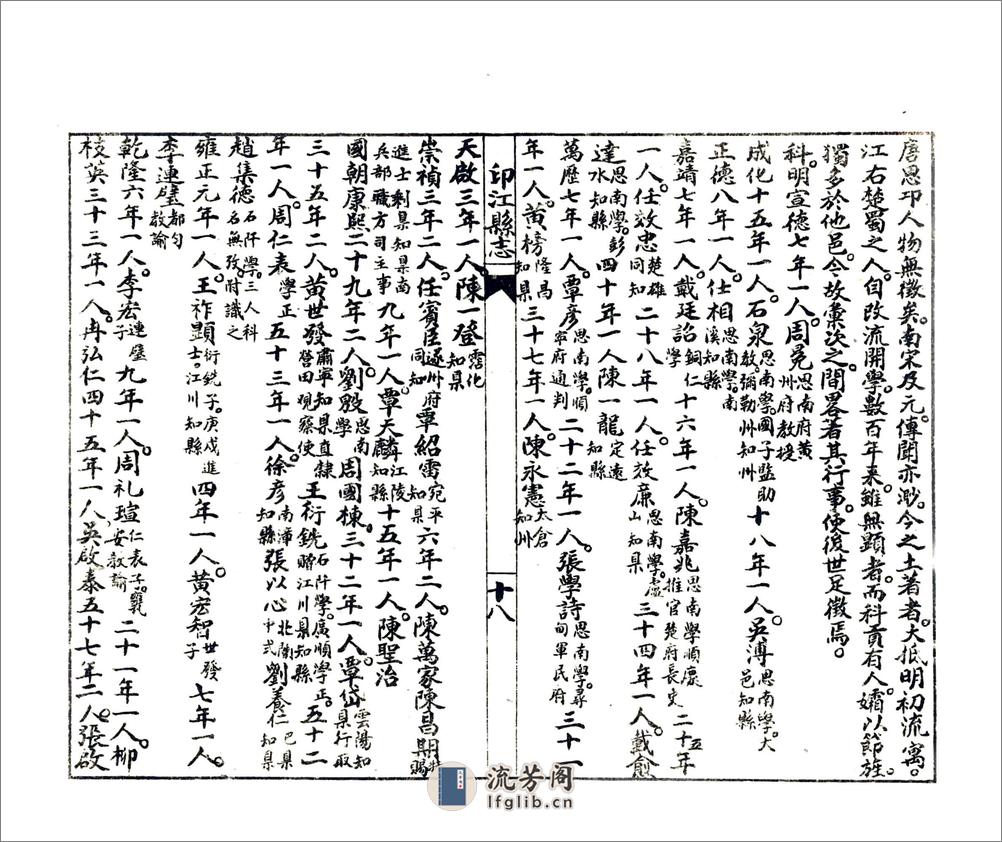 唐思卭人物無徵矣。南宋及元。傳聞亦渺。今之土著者。大抵明初流寓。
江右楚蜀之人。自改流開學。數百年来。雖無顯者。而科貢有人。孀以節旌。
獨多於他邑。今故彙次之。間畧著其行事。使後世足徵焉。
科。明宣德七年一人。周冕思南府黄州府教授
成化十五年一人。石泉思南學。國子監助教。彌勒州知州十八年一人。吳溥思南學。大邑知縣
正德八年一人。仕相思南學。南溪知縣
嘉靖七年一人。戴廷詔銅仁學十六年一人。陳嘉兆思南學順慶推官楚府長史二十五年
一人。任效忠楚雄同知二十八年一人。任效廉思南學。盧山知県三十四年一人。戴愈
達思南學。彭水知縣四十年一人。陳一龍定遠知縣
萬歷七年一人。覃彥思南學。順寧府通判二十二年一人。張學詩思南學。尋甸軍民府三十一
年一人。黄榜隆昌知県三十七年一人。陳永憲太倉知州
印江縣志
十八
天啟三年一人。陳一登霑化知県
崇禎三年二人。任賓臣遂州府同知覃紹雷宛平知県六年二人。陳萬家陳昌期特賜
進士剩県知県尚兵部職方司主事九年一人。覃天麟江陵知縣十五年一人。陳聖治
國朝康熙二十九年二人。劉毅思南學周國棟。三十二年一人。覃岱雲陽知県行取
三十五年二人。黄世發肅寧知県直隸營田觀察使王衍銑石阡學。廣順學正。贈江川県知縣五十二
年一人。周仁表學正五十三年一人。徐彥南漳知縣張以心北闈中式劉養仁巴県知県
趙集德石阡學。三人科名無攷附識之
雍正元年一人。王祚顯衍銑子。庚戌進士。江川知縣四年一人。黄宏智世發子七年一人。
李連璧都勻教諭
乾隆六年一人。李宏連璧子九年一人。周礼瑄仁表子。甕安教諭二十一年一人。柳
枝英三十三年一人。冉弘仁四十五年一人。吳啟泰五十七年二人。張啟
流芳阁
lfglib.cn